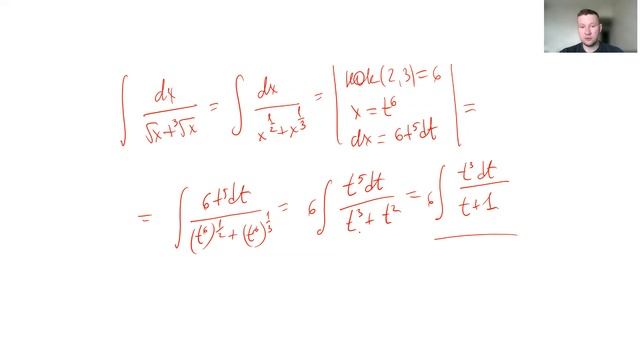 ∫ dx / (√x + ³√x) = ∫ dx / (x^(1/2) + x^(1/3)) = | нок(2,3) = 6
x = t⁶
dx = 6t⁵dt | =
= ∫ 6t⁵dt / ((t⁶)^(1/2) + (t⁶)^(1/3)) = 6∫ t⁵dt / (t³ + t²) = 6∫ t³dt / (t + 1)